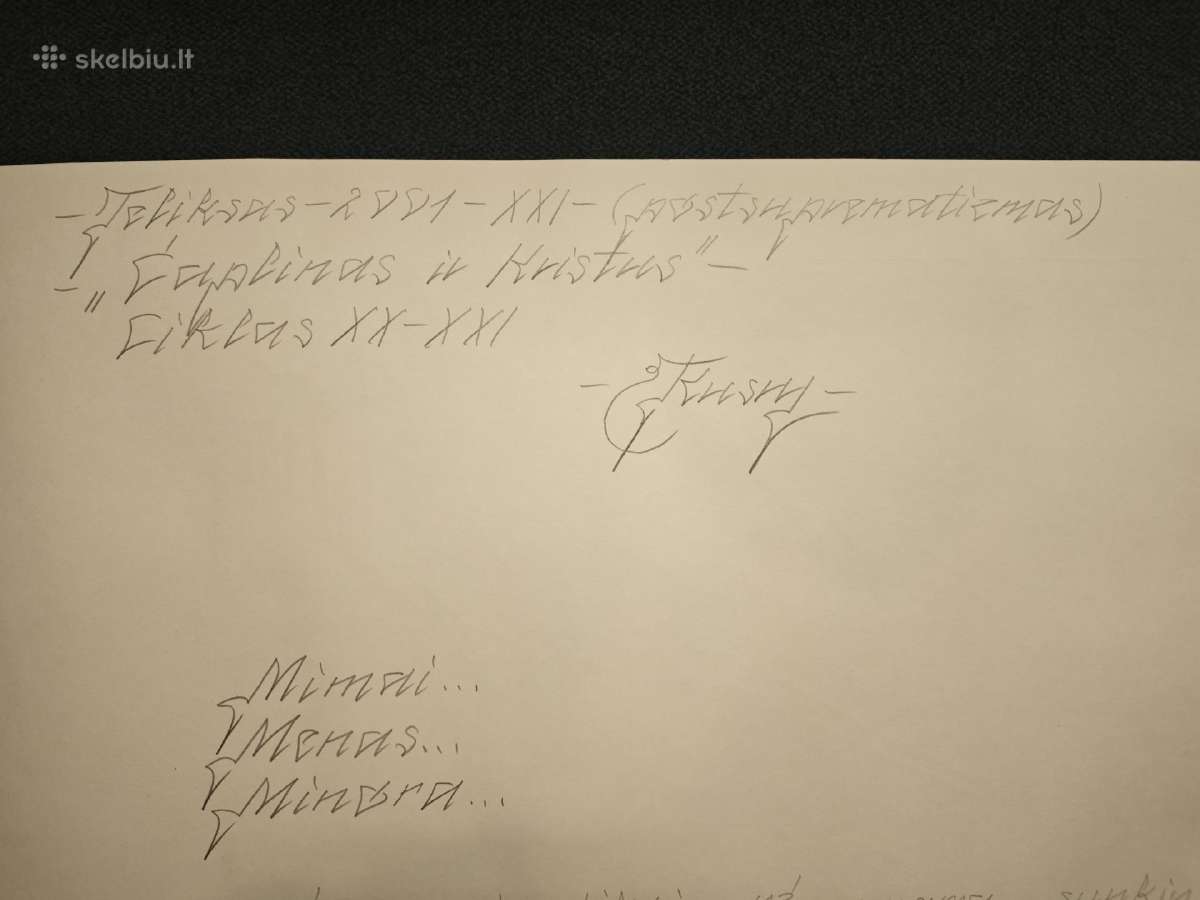 skelbiu.lt
-Teliksas-2001-XXI-(postsuprematiemas)
-"Čaplinas ir Kristus"-
Ciklas XX-XXI
-Kusy-
Mimai...
Menas...
Minora...
sunkin